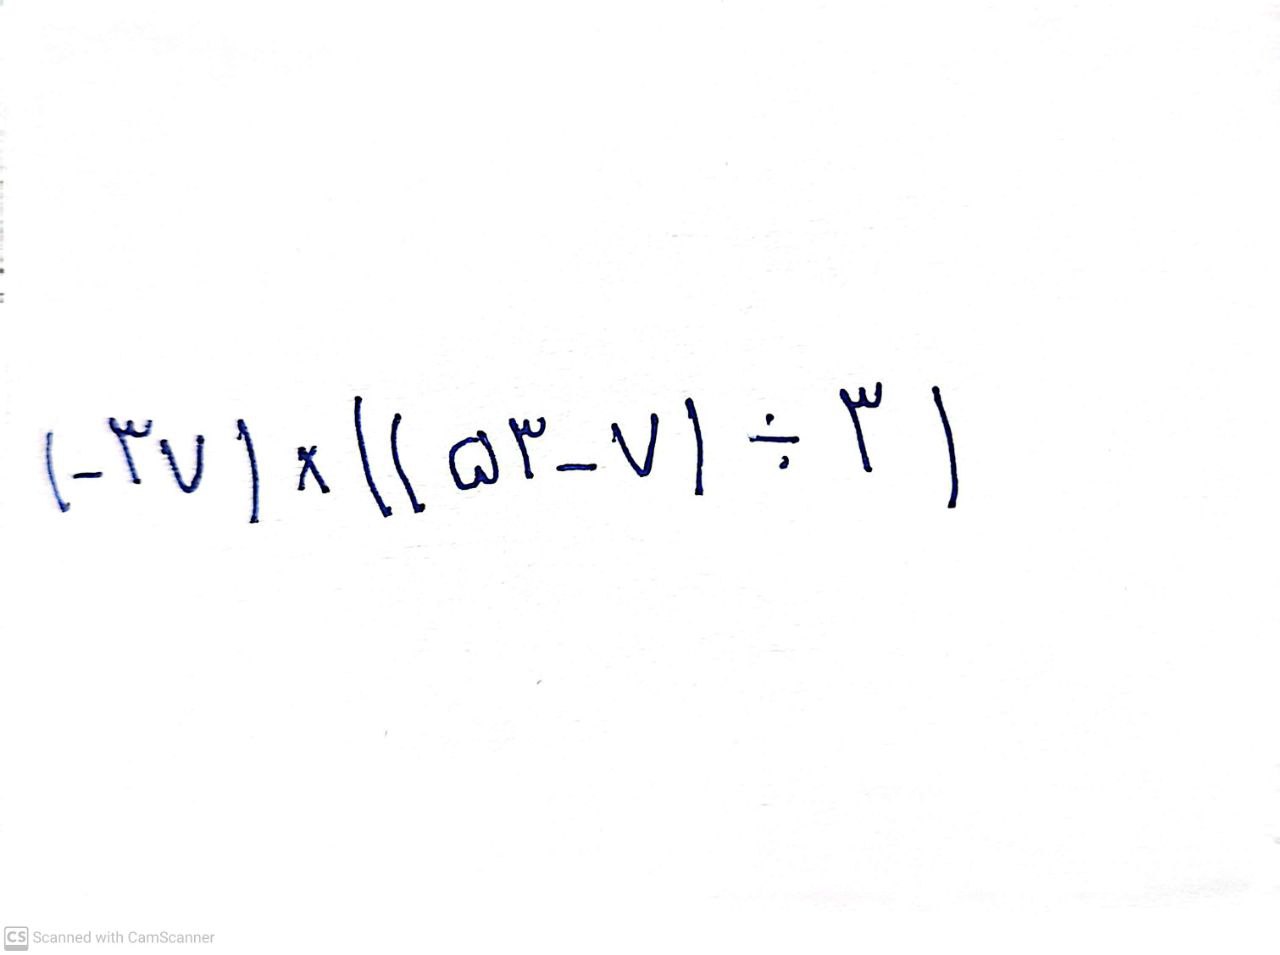 (-۳۷) × ((۵۳-۷) ÷ ۳)
CS Scanned with CamScanner